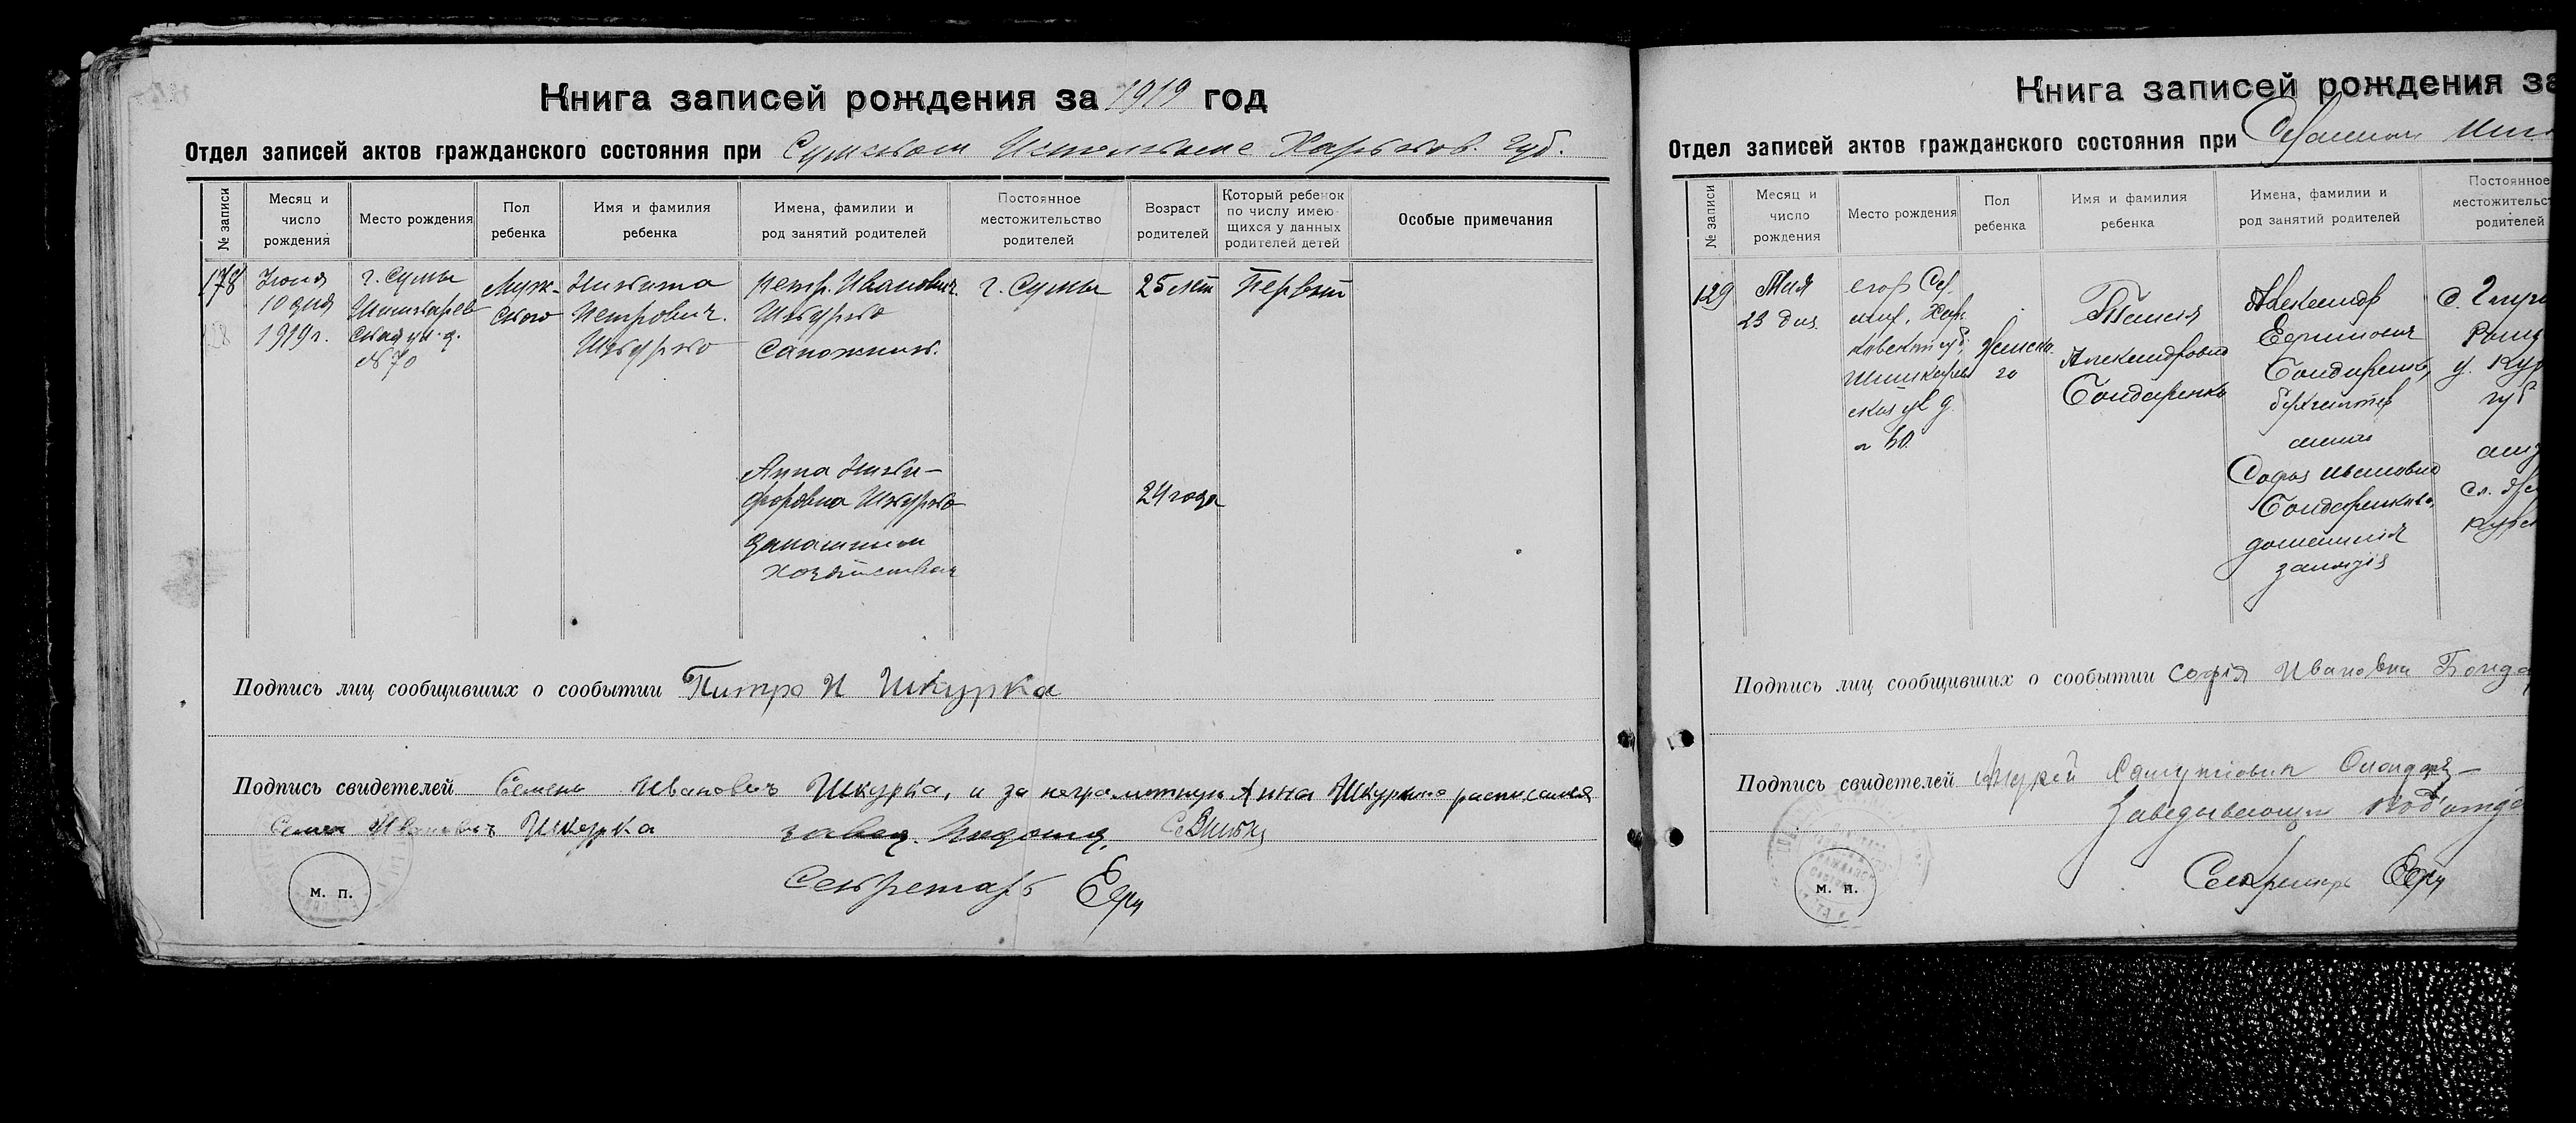 Книга записей рождения за 1919 год
Отдел записей актов гражданского состояния при Сумском Исполкоме Харьков. Губ.
№ записи
Месяц и число рождения
Место рождения
Пол ребенка
Имя и фамилия ребенка
Имена, фамилии и род занятий родителей
Постоянное местожительство родителей
Возраст родителей
Который ребенок по числу имеющихся у данных родителей детей
Особые примечания
178
Июня
10 дня
1919 г.
г. Сумы
Шишкарев
ская ул. д.
№ 70
Муж-
ского
Никита
Петрович.
Шкурко
Петр. Иванович.
Шкурко
Сапожник.
г. Сумы
25 лет
Первый
Анна Ники-
форовна Шкурко
домашнии
хозяйствах
24 года
Подпись лиц сообщивших о сообытии Питро И Шкурка
Подпись свидетелей Семенъ Ивановичъ Шкурка, и за неграмотную Анна Шкуркино расписался
Семен Ивановичъ Шкурка
завед. Подотд.
Секретарь
М. П.
Книга записей рождения за
Отдел записей актов гражданского состояния при
№ записи
Месяц и число рождения
Место рождения
Пол ребенка
Имя и фамилия ребенка
Имена, фамилии и род занятий родителей
Постоянное
местожительст
родителей
129
Мая
23 дня
гор Су
мы, Харь
ковской губ.
Шишкарев
ская ул д.
№ 50.
Женска-
го
Таисия
Александровна
Бондаренко
Александр
Ефимович
Бондаренко,
бухгалтер
София Ивановна
Бондаренкова,
домашния
занятія
губ
Подпись лиц сообщивших о сообытии Софія Ивановна Бонда
Подпись свидетелей
Заведывающий Под'отде
Секретарь
М. П.